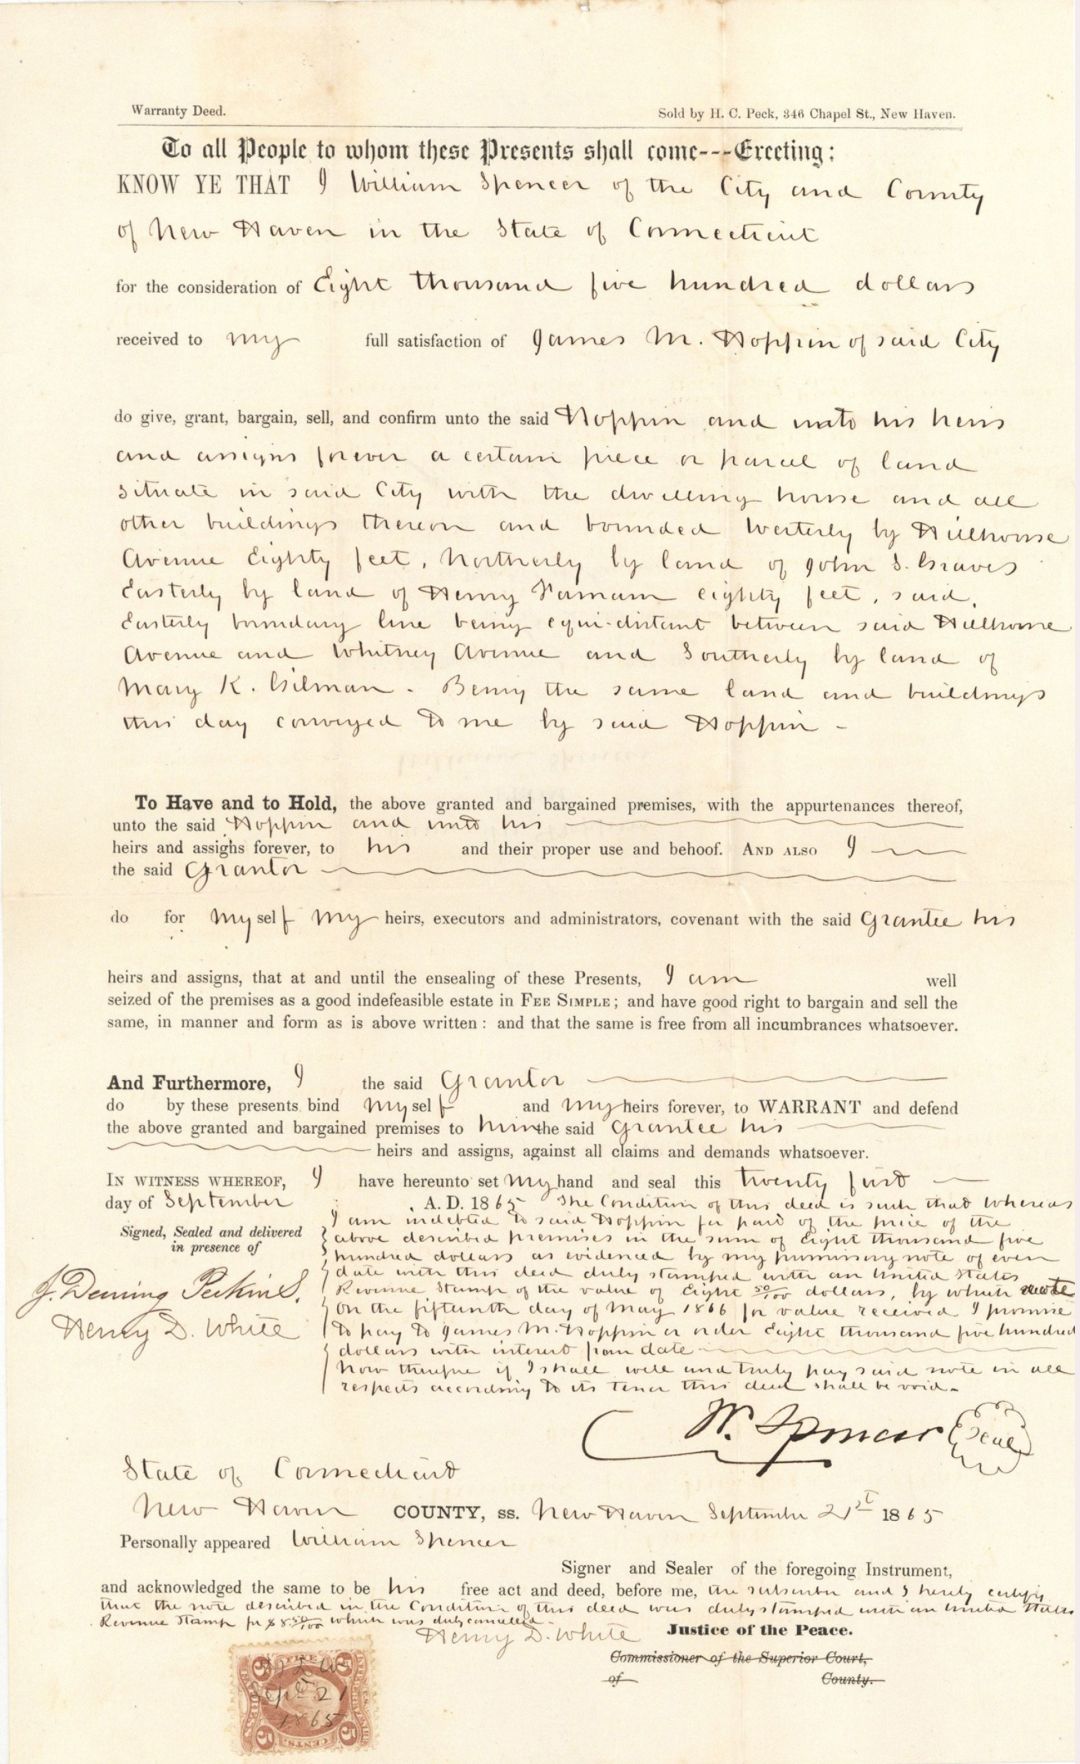 Warranty Deed. Sold by H. C. Peck, 346 Chapel St., New Haven.
To all People to whom these Presents shall come---Greeting:
KNOW YE THAT I William Spencer of the City and County
of New Haven in the State of Connecticut
for the consideration of Eight thousand five hundred dollars
received to my full satisfaction of James M. Hoppin of said City
do give, grant, bargain, sell, and confirm unto the said Hoppin and unto his heirs
and assigns forever a certain piece or parcel of land
situate in said City with the dwelling house and all
other buildings thereon and bounded Westerly by Hillhouse
Avenue Eighty feet, Northerly by land of John S. Graves
Easterly by land of Henry Farnam eighty feet, said
Easterly boundary line being equi-distant between said Hillhouse
Avenue and Whitney Avenue and Southerly by land of
Mary K. Gilman. Being the same land and buildings
this day conveyed to me by said Hoppin -
To Have and to Hold, the above granted and bargained premises, with the appurtenances thereof,
unto the said Hoppin and unto his
heirs and assighs forever, to his and their proper use and behoof. AND ALSO I
the said Grantor
do for my self my heirs, executors and administrators, covenant with the said Grantee his
heirs and assigns, that at and until the ensealing of these Presents, I am well
seized of the premises as a good indefeasible estate in FEE SIMPLE; and have good right to bargain and sell the
same, in manner and form as is above written: and that the same is free from all incumbrances whatsoever.
And Furthermore, I the said Grantor
do by these presents bind my self and my heirs forever, to WARRANT and defend
the above granted and bargained premises to him the said Grantee his
heirs and assigns, against all claims and demands whatsoever.
IN WITNESS WHEREOF, I have hereunto set my hand and seal this twenty first
day of September A. D. 1865 The Condition of this deed is such that whereas
I am indebted to said Hoppin for part of the price of the
above described premises in the sum of Eight thousand five
hundred dollars as evidenced by my promissory note of even
date with this deed duly stamped with an United States
Revenue Stamp of the value of Eight 50/100 dollars, by which note
on the fifteenth day of May 1866 for value received I promise
to pay to James M. Hoppin or order Eight thousand five hundred
dollars with interest from date
Now therefore if I shall well and truly pay said note in all
respects according to its tenor this deed shall be void.
Signed, Sealed and delivered
in presence of
J. Deming Perkins.
Henry D. White
W. Spencer Seal
State of Connecticut
New Haven COUNTY, ss. New Haven September 21st 1865
Personally appeared William Spencer
Signer and Sealer of the foregoing Instrument,
and acknowledged the same to be his free act and deed, before me, the subscriber and I hereby certify
that the note described in the Condition of this deed was duly stamped with an United States
Revenue Stamp for $8 50/100 which was duly cancelled.
Henry D. White Justice of the Peace.
Commissioner of the Superior Court,
of County.
5 5
Sept 21
1865
5 CENTS 5